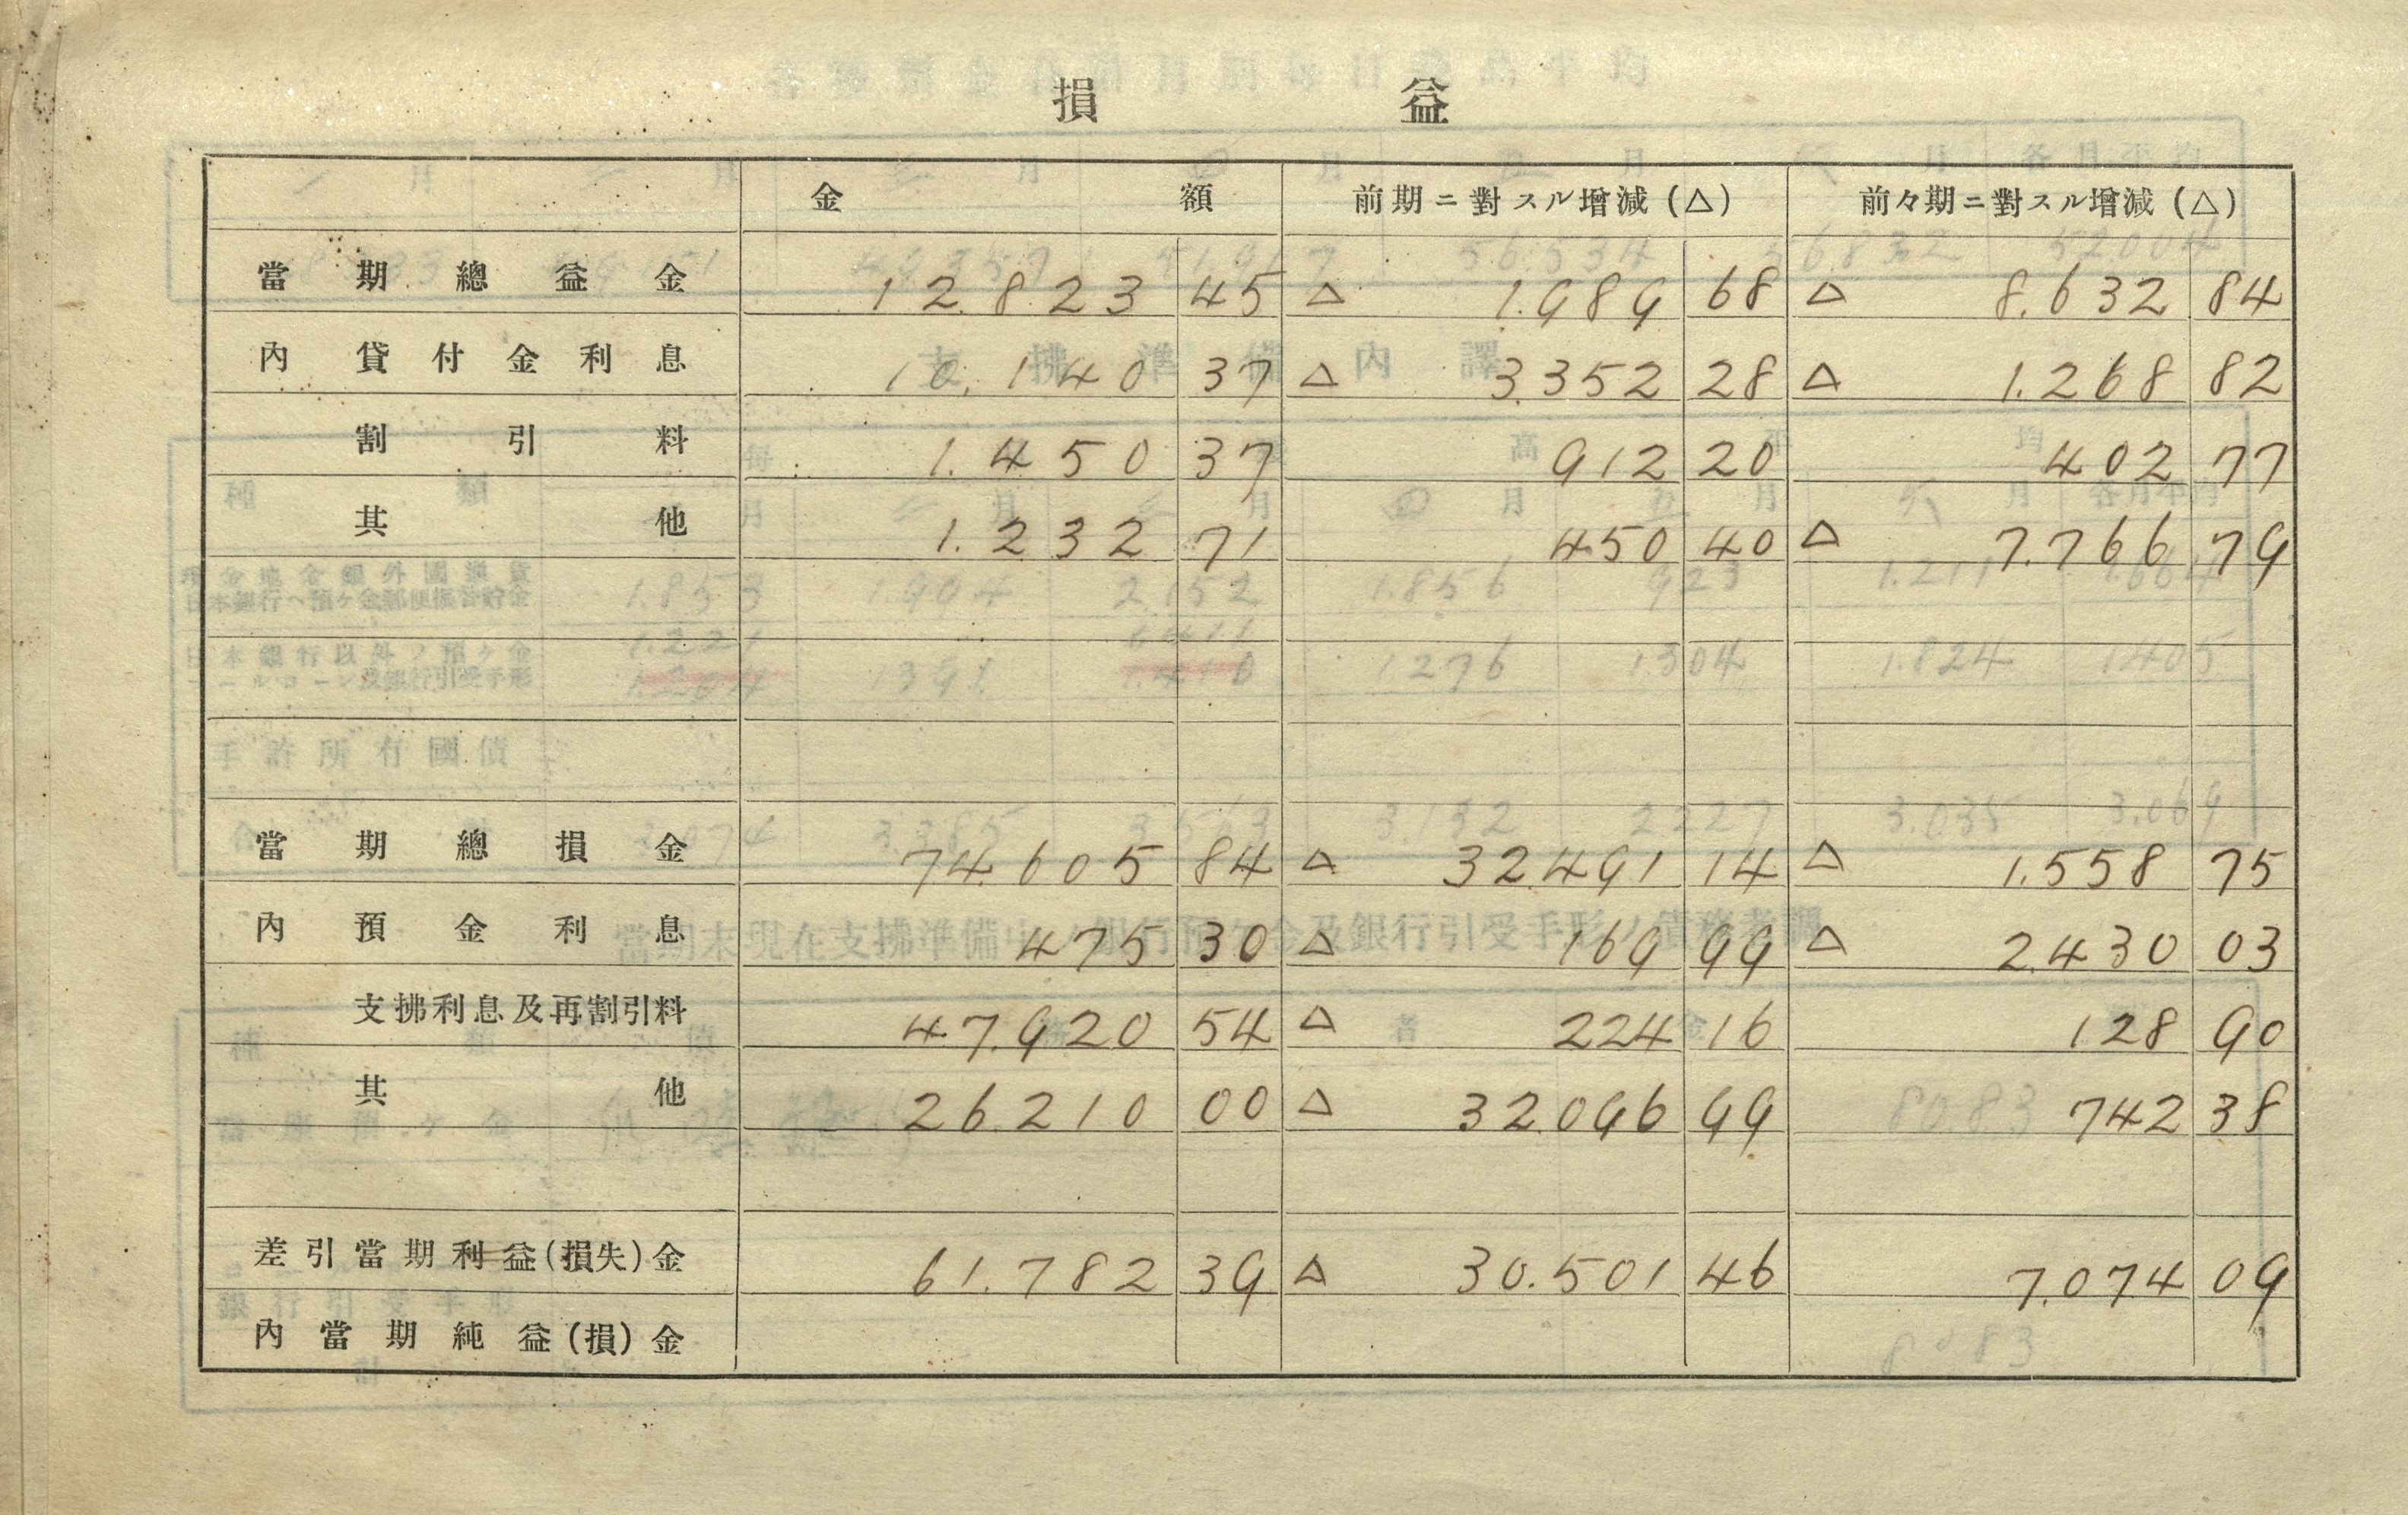 損益
金額 前期ニ對スル增減(△) 前々期ニ對スル增減(△)
當期總益金 12.823 45 △ 1.989 68 △ 8.632 84
內 貸付金利息 10.140 37 △ 3.352 28 △ 1.268 82
割引料 1.450 37 912 20 402 77
其他 1.232 71 450 40 △ 7.766 79
當期總損金 74.605 84 △ 32.491 14 △ 1.558 75
內 預金利息 475 30 △ 169 99 △ 2.430 03
支拂利息及再割引料 47.920 54 △ 224 16 128 90
其他 26.210 00 △ 32.096 99 742 38
差引當期利益(損失)金 61.782 39 △ 30.501 46 7.074 09
內當期純益(損)金